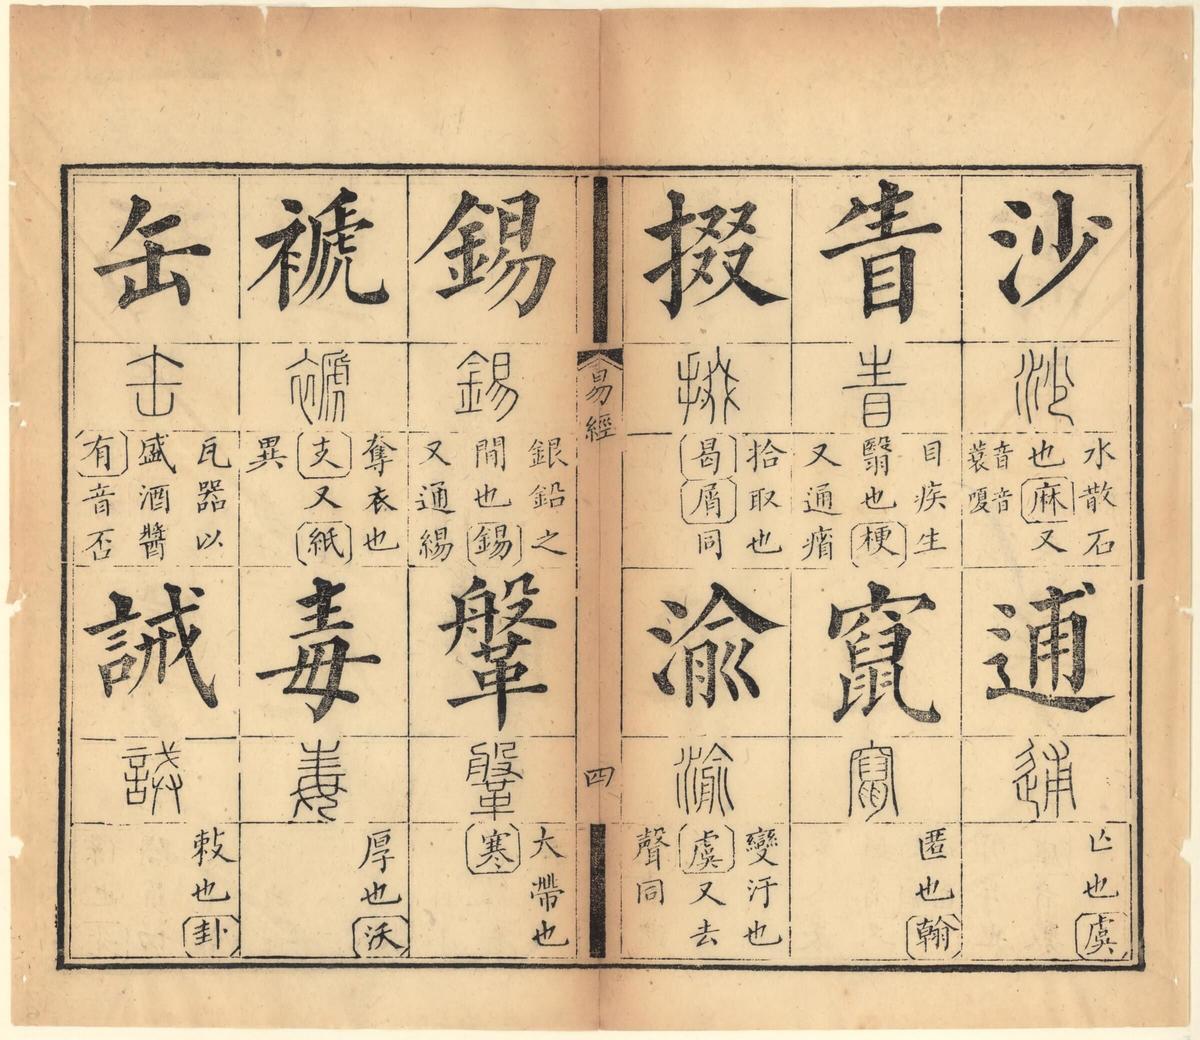 沙
沙
水散石
也麻又
音音
蓑嗄
逋
逋
亡也虞
眚
眚
目疾生
翳也梗
又通瘖
竄
竄
匿也翰
掇
掇
拾取也
曷屑同
渝
渝
變汙也
虞又去
聲同
易經
四
錫
錫
銀鉛之
間也錫
又通緆
鞶
鞶
大帶也
寒
褫
褫
奪衣也
支又紙
異
毒
毒
厚也沃
缶
缶
瓦器以
盛酒醬
有音否
誡
誡
敕也卦